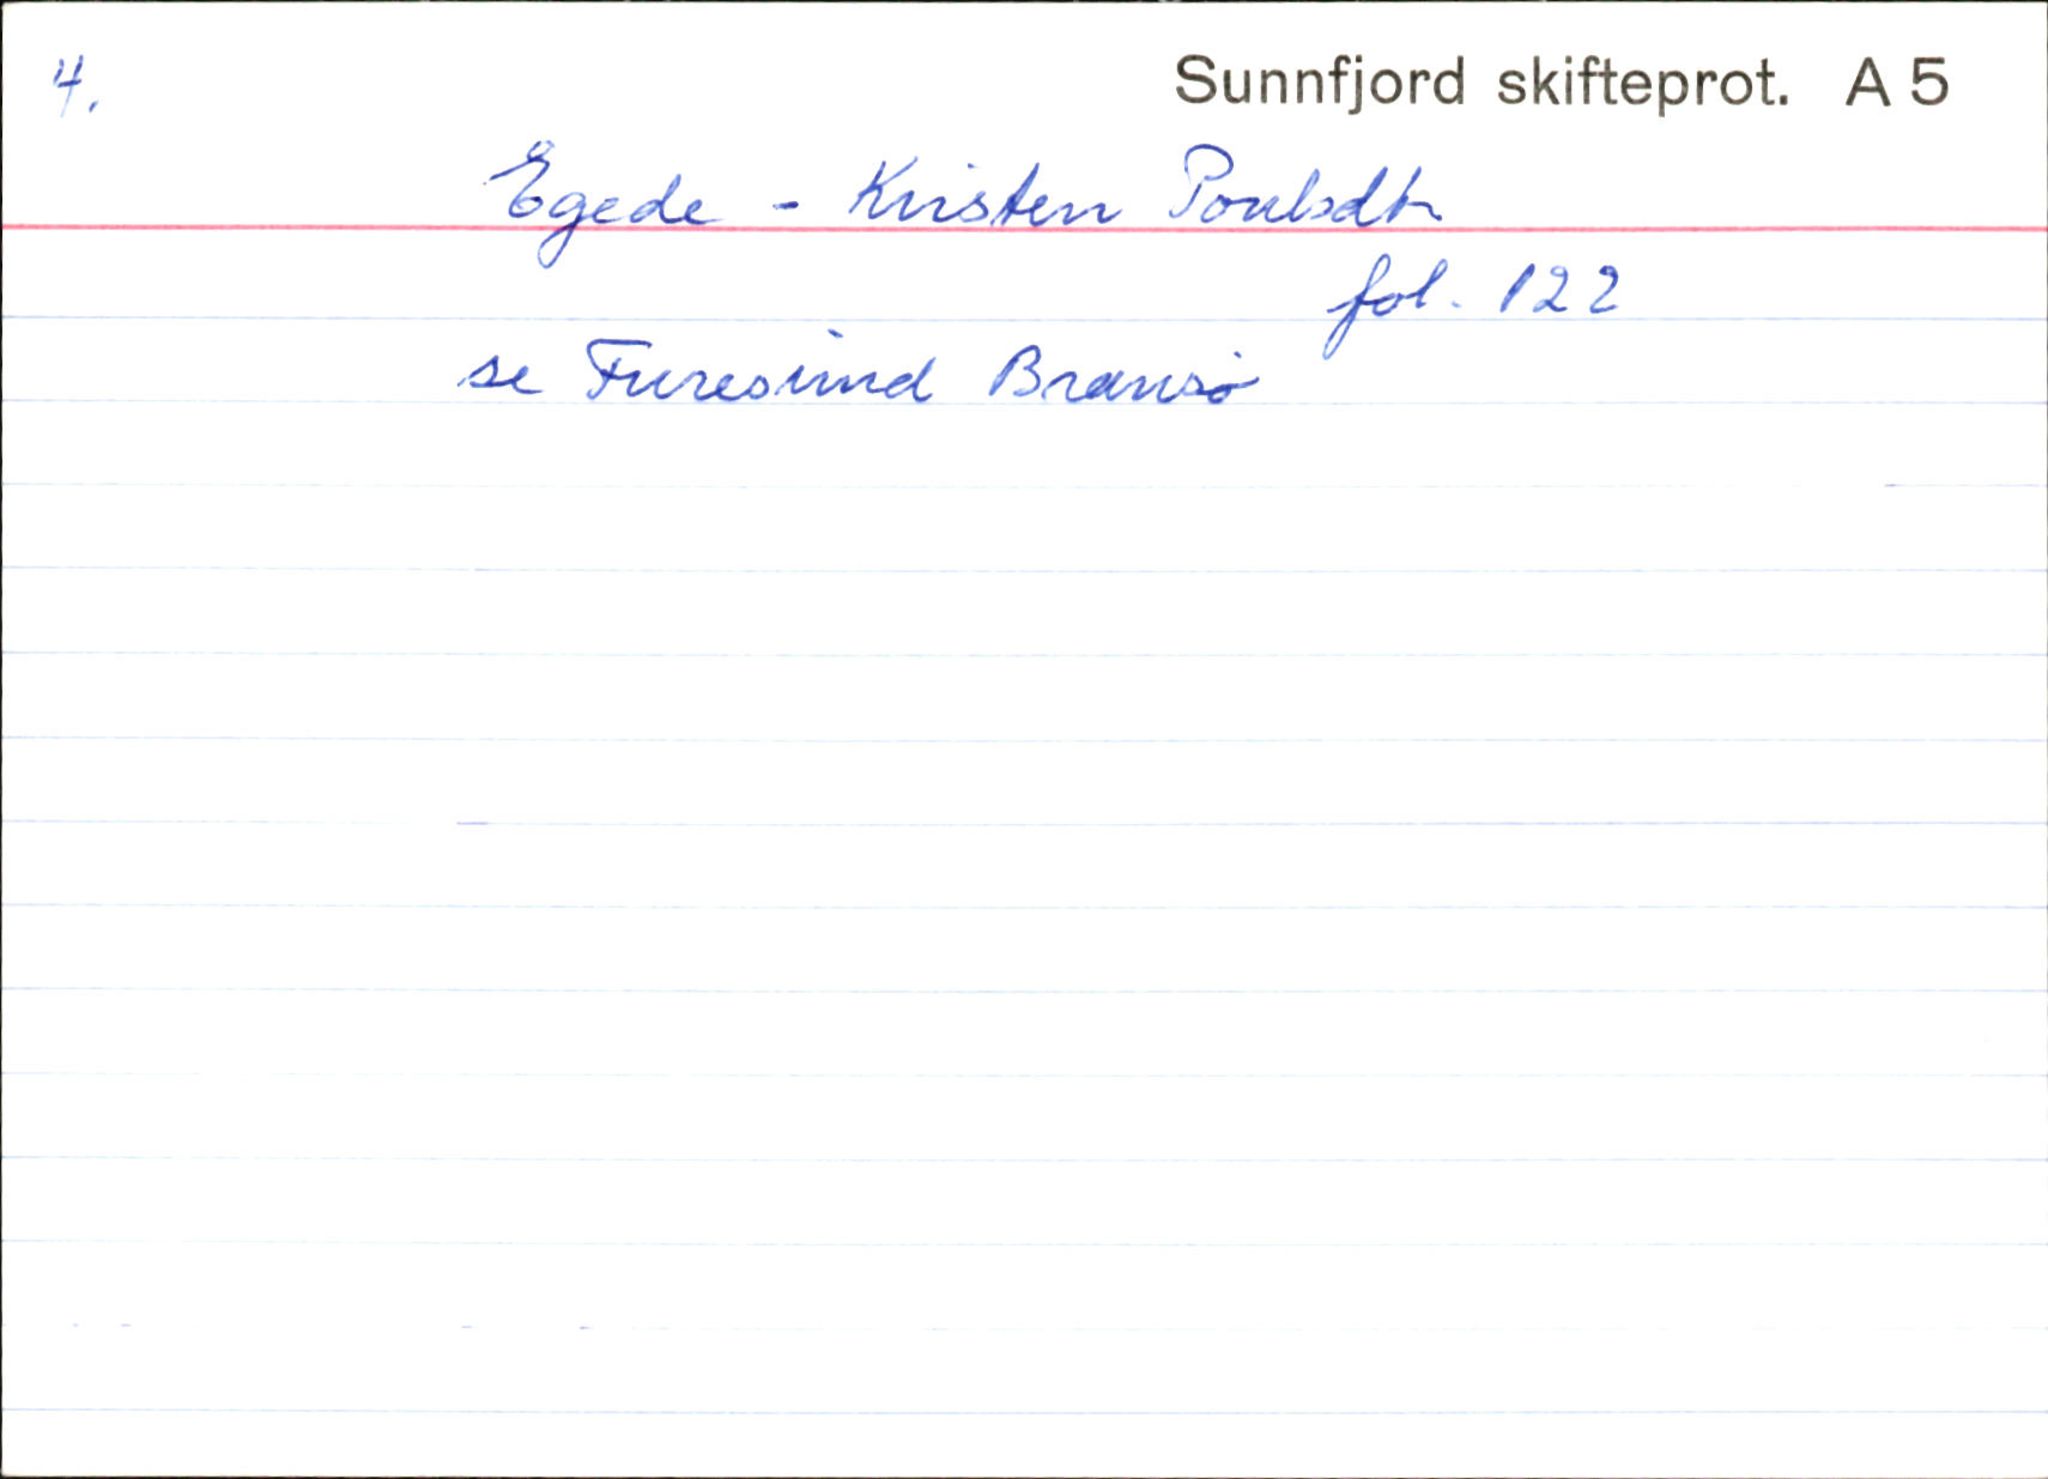 4.
Sunnfjord skifteprot. A 5
Egede - Kristen Poulsdtr
fol. 122
se Furesund Bransø